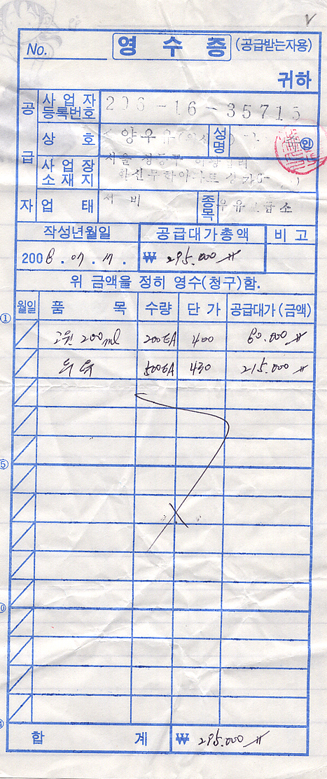 No. 영수증 (공급받는자용)
귀하
공급자
사업자 등록번호 206-16-35715
상호 성명 인
사업장 소재지
업태 서비 종목
작성년월일 공급대가총액 비고
2008.07.17. ₩ 295.000
위 금액을 정히 영수(청구)함.
월일 품목 수량 단가 공급대가(금액)
200ml 200EA 400 80.000
우유 500EA 430 215.000
합계 ₩ 295.000